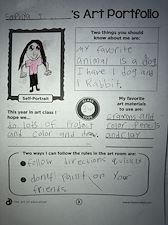 Sophia J 's Art Portfolio
Two things you should
know about me are:
my favorite
animal is a dog.
I have I dog and
I Rabbit.
Self-Portrait
This year in art class I
hope we...
to lots of Project
and color and draw.
My favorite
art materials
to use are:
crayons and
color Pencils
and clay
Two ways I can follow the rules in the art room are:
follow directions quickly
don't paint on your
friends
The Art of Education